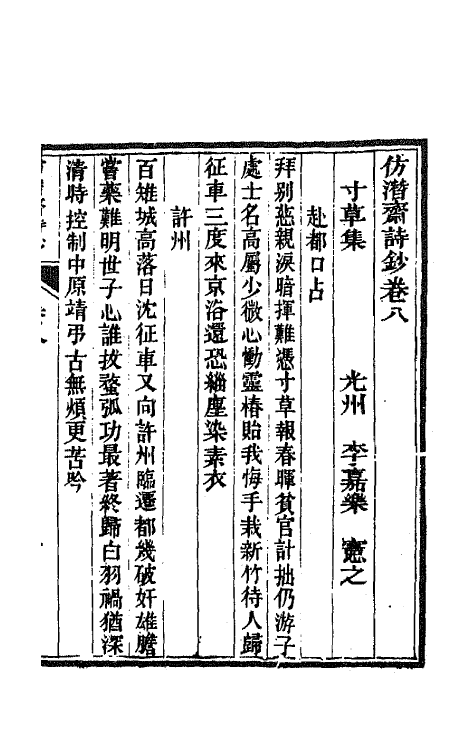 仿潛齋詩鈔卷八
寸草集　光州　李嘉樂　憲之
赴都口占
拜別慈親淚暗揮難憑寸草報春暉貧官計拙仍游子
處士名高屬少微心慟靈椿貽我悔手栽新竹待人歸
征車三度來京洛還恐緇塵染素衣
許州
百雉城高落日沈征車又向許州臨遷都幾破奸雄膽
嘗藥難明世子心誰拔蝥弧功最著終歸白羽禍猶深
清時控制中原靖弔古無煩更苦吟